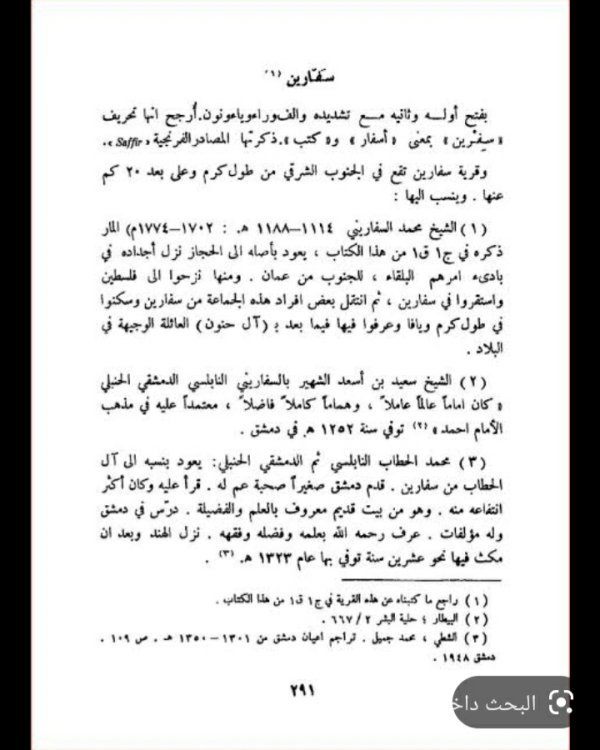 سَفّارين (١)
بفتح أولــه وثانيه مــع تشديده والف وراء وياء ونون. أرجح انها تحريف
« سيفْرين » بمعنى « أسفار » و« كتب ». ذكرتها المصادر الفرنجية « Saffir ».
وقرية سفارين تقع في الجنوب الشرقي من طول كرم وعلى بعد ٢٠ كم
عنها . وينسب اليها :
(١) الشيخ محمد السفاريني ١١١٤–١١٨٨ هـ : ١٧٠٢–١٧٧٤م) المار
ذكره في ج١ ق١ من هذا الكتاب ، يعود بأصله الى الحجاز نزل أجداده في
بادىء امرهم البلقاء ، للجنوب من عمان . ومنها نزحوا الى فلسطين
واستقروا في سفارين ، ثم انتقل بعض افراد هذه الجماعة من سفارين وسكنوا
في طول كرم ويافا وعرفوا فيها فيما بعد بـ (آل حنون) العائلة الوجيهة في
البلاد .
(٢) الشيخ سعيد بن أسعد الشهير بالسفاريني النابلسي الدمشقي الحنبلي
« كان اماماً عالماً عاملاً ، وهماماً كاملاً فاضلاً ، معتمداً عليه في مذهب
الأمام احمد » (٢) توفي سنة ١٢٥٢ هـ في دمشق .
(٣) محمد الحطاب النابلسي ثم الدمشقي الحنبلي: يعود بنسبه الى آل
الحطاب من سفارين . قدم دمشق صغيراً صحبة عم له . قرأ عليه وكان أكثر
انتفاعه منه . وهو من بيت قديم معروف بالعلم والفضيلة . درّس في دمشق
وله مؤلفات . عرف رحمه الله بعلمه وفضله وفقهه . نزل الهند وبعد ان
مكث فيها نحو عشرين سنة توفي بها عام ١٣٢٣ هـ (٣) .
(١) راجع ما كتبناه عن هذه القرية في ج١ ق١ من هذا الكتاب .
(٢) البيطار ؛ حلية البشر ٢ / ٦٦٧ .
(٣) الشطي ، محمد جميل . تراجم اعيان دمشق من ١٣٠١–١٣٥٠ هـ . ص ١٠٩ .
دمشق ١٩٤٨ .
٢٩١
البحث داخ